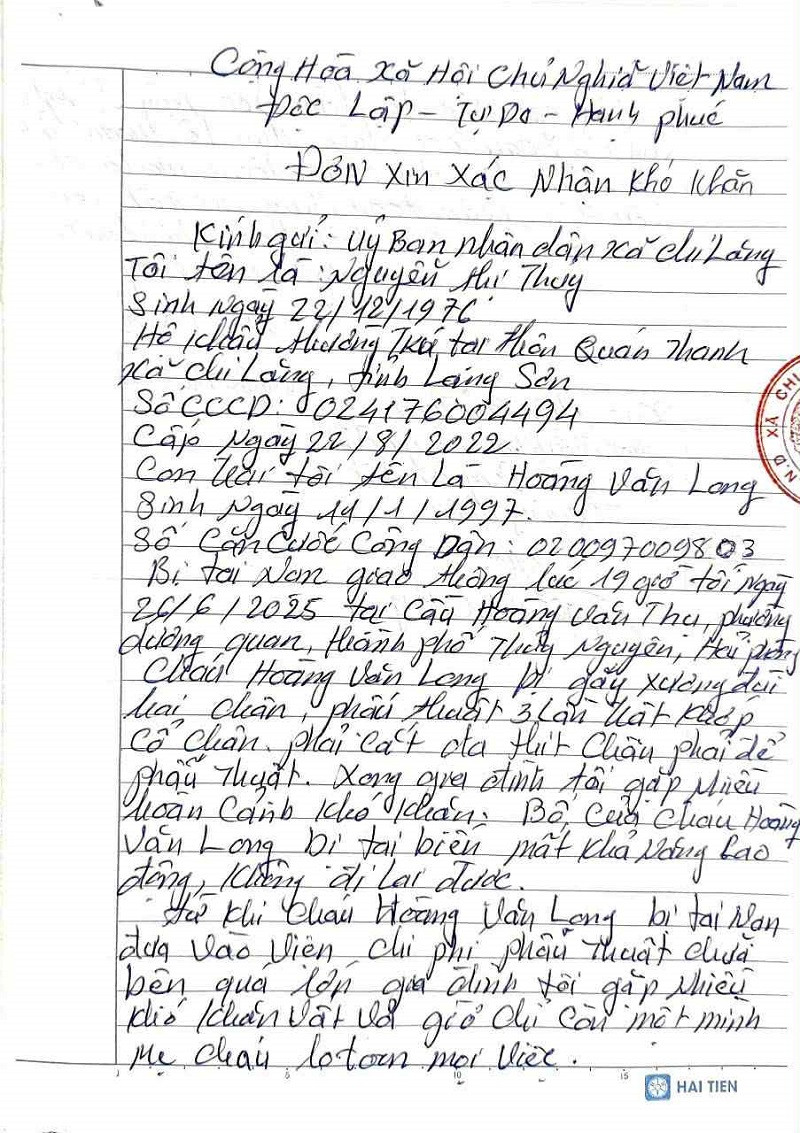 Cộng Hòa Xã Hội Chủ Nghĩa Việt Nam
Độc Lập - Tự Do - Hạnh phúc
ĐƠN Xin Xác Nhận Khó Khăn
Kính gửi: Uỷ Ban nhân dân xã chi Lăng
Tôi tên là: Nguyễn thị Thuy
Sinh Ngày 22/12/1976
Hộ khẩu thường Trú tại thôn Quán Thanh
Xã Chi Lăng, tỉnh Lạng Sơn
Số CCCD: 024176004494
Cấp Ngày 22/8/2022.
Con trai tôi tên Là Hoàng Văn Long
Sinh Ngày 11/1/1997.
Số Căn Cước Công Dân: 020097009803
Bị tai Nạn giao thông lúc 19 giờ tối ngày
26/6/2025 tại Cầu Hoàng Văn Thụ, phường
dương quan, thành phố Thủy Nguyên, Hải phòng
Cháu Hoàng Văn Long bị gãy xương đùi
hai chân, phẫu thuật 3 Lần trật Khớp
Cổ chân. phải cắt da thịt Chân phải để
phẫu Thuật. Xong gia đình tôi gặp Nhiều
hoàn Cảnh khó khăn. Bố của Cháu Hoàng
Văn Long bị tai biến mất khả Năng Lao
động, không đi lại được.
từ khi Cháu Hoàng Văn Long bị tai Nạn
đưa vào viện chi phí phẫu Thuật chữa
bện quá lớn gia đình tôi gặp Nhiều
khó khăn vất vả giờ chỉ Còn một mình
Mẹ cháu lo toan mọi việc.
N.D XÃ CHI
HAI TIEN